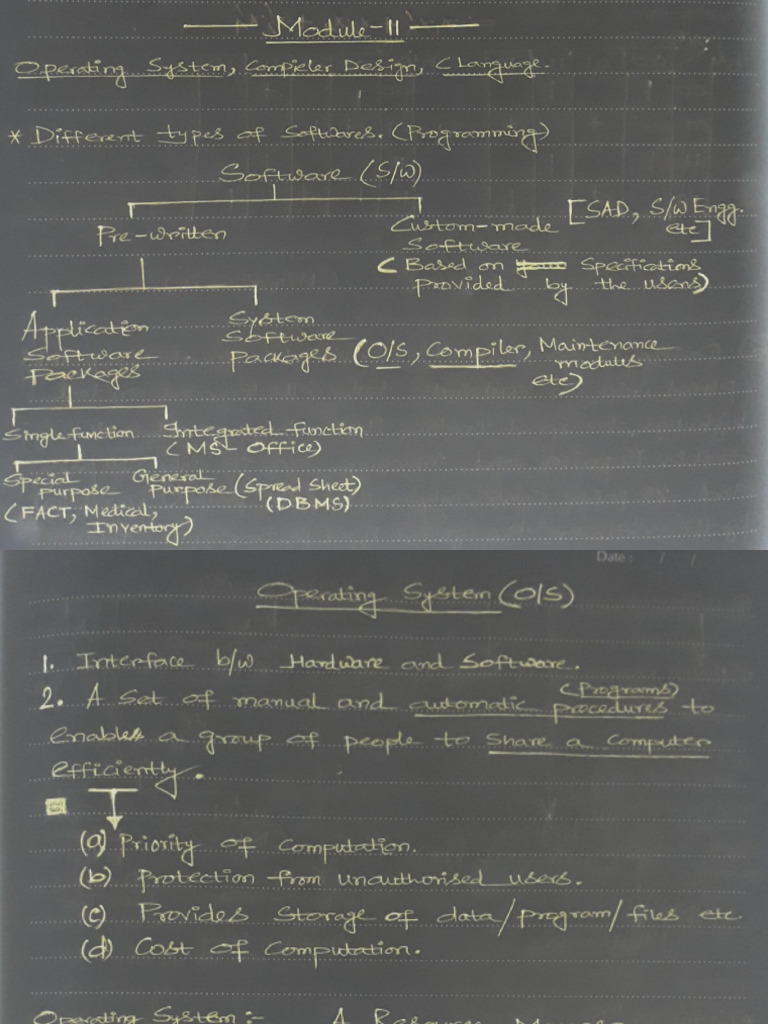 Module-II
Operating System, Compieler Design, C Language.
* Different types of Softwares. (Programming)
Software (S/W)
Pre-written
Custom-made [SAD, S/W Engg.
Software etc]
(Based on Specifiations
provided by the users)
Application
Software
Packages
System
Software
packages (O/S, Compiler, Maintenance
modules
etc)
Single function
Integrated function
(MS-Office)
Special
purpose
(FACT, Medical,
Inventory)
General
purpose (Spread Sheet)
(DBMS)
Date : / /
Operating System (O/S)
1. Interface b/w Hardware and Software.
(Programs)
2. A set of manual and automatic procedures to
enable a group of people to share a computer
efficiently.
(a) Priority of computation.
(b) Protection from unauthorised users.
(c) Provides storage of data/program/files etc.
(d) Cost of computation.
Operating System :- A